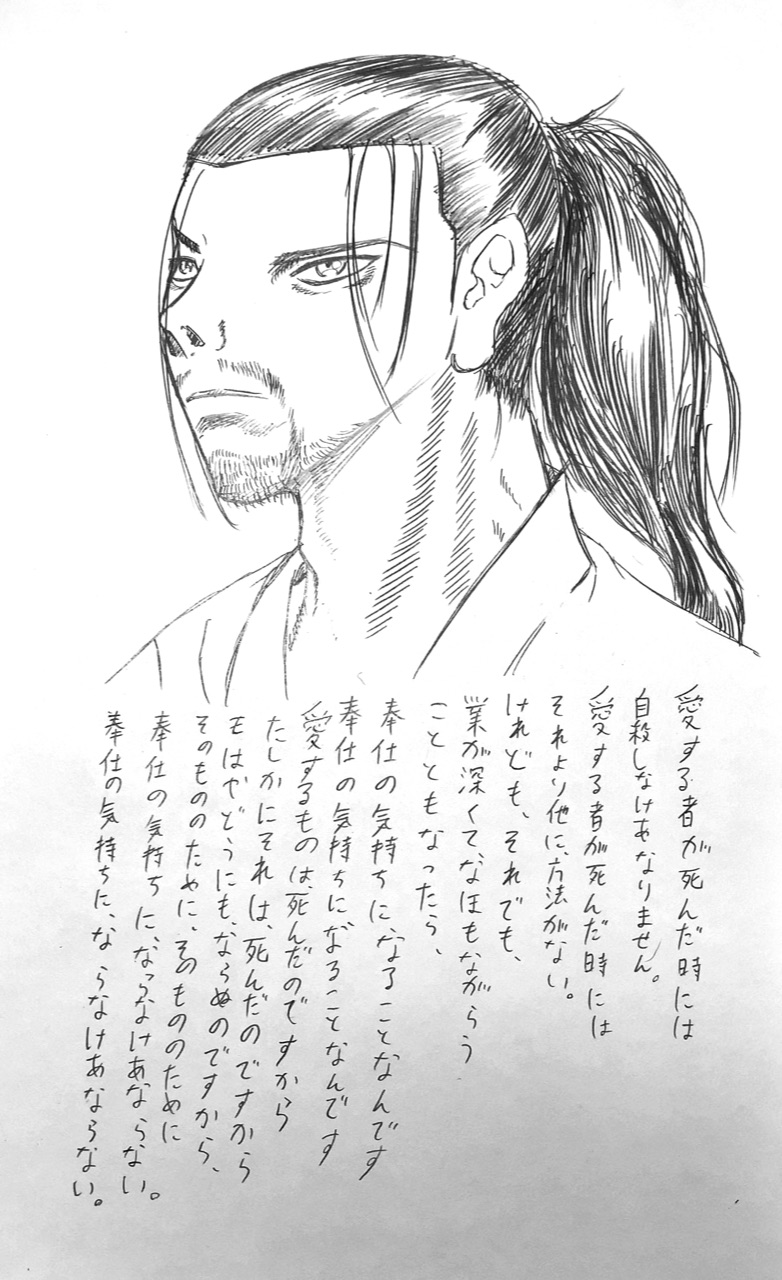 愛する者が死んだ時には
自殺しなけあなりません。
愛する者が死んだ時には
それより他に、方法がない。
けれども、それでも、
業が深くて、なほもながらう
ことともなったら、
奉仕の気持ちに、なることなんです
奉仕の気持ちに、なることなんです
愛するものは、死んだのですから
たしかにそれは、死んだのですから
もはやどうにも、ならぬのですから、
そのもののために、そのもののために
奉仕の気持ちに、ならなけあならない。
奉仕の気持ちに、ならなけあならない。